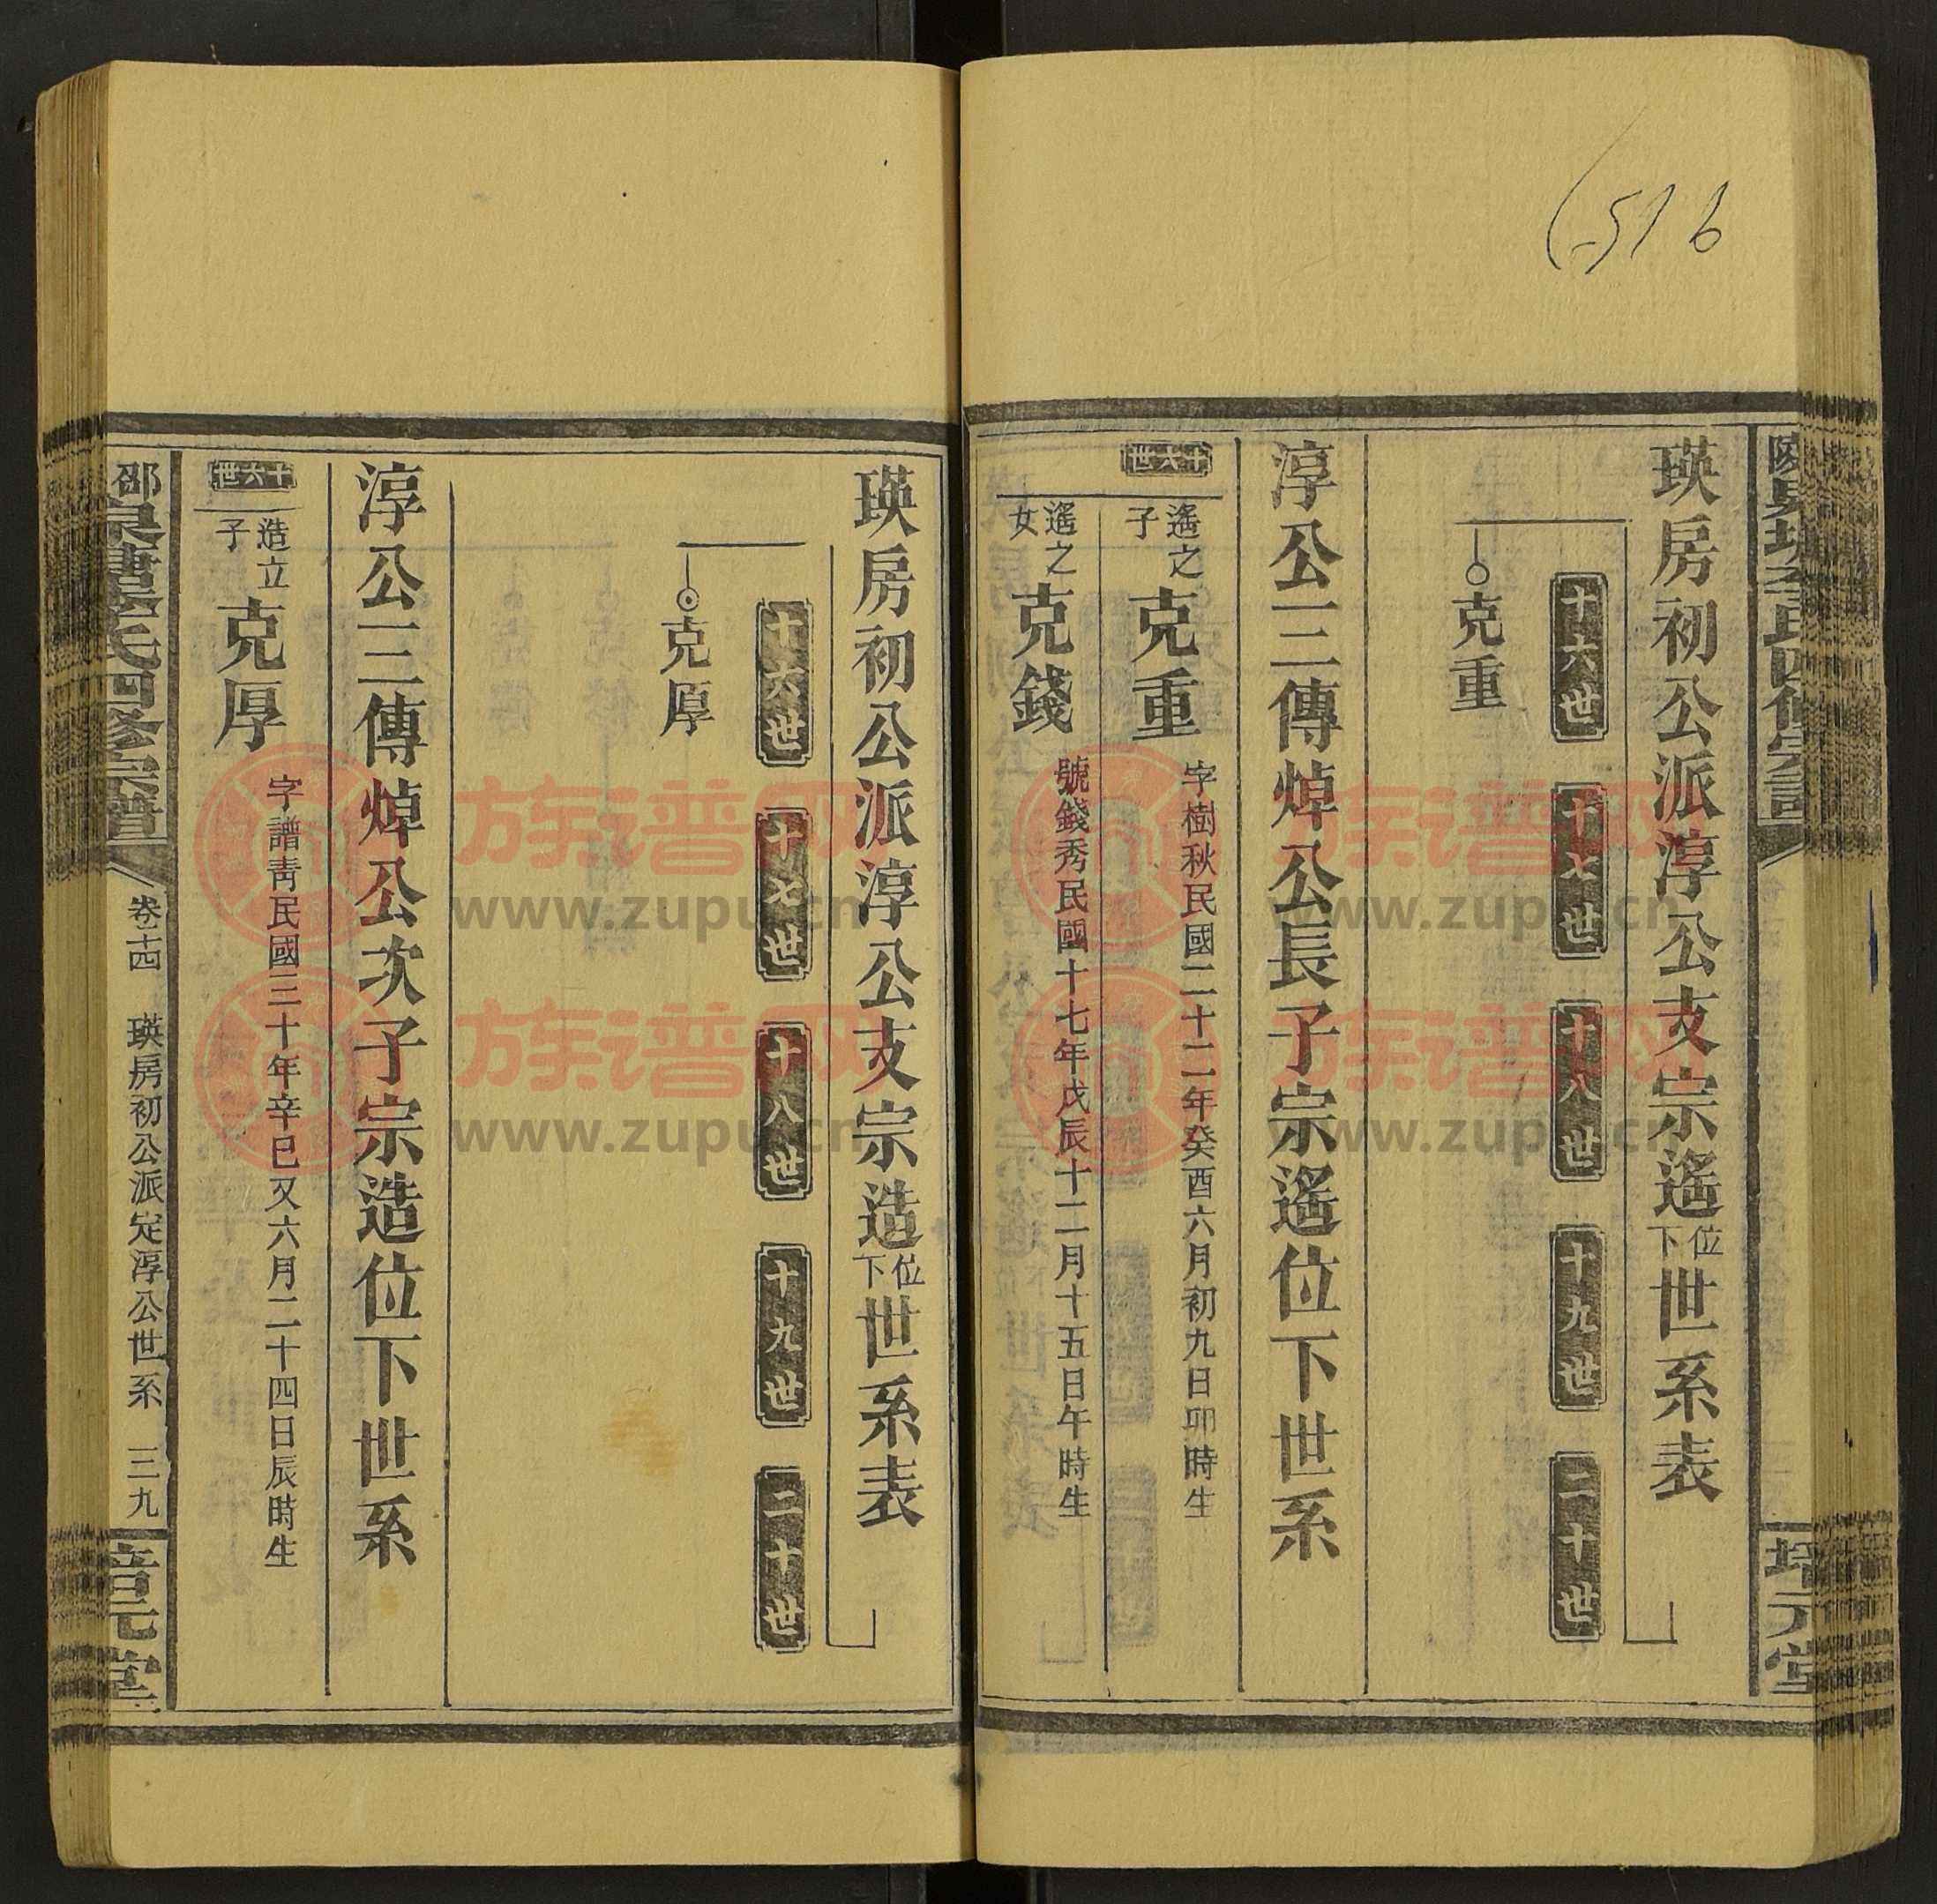 516
瑛房初公派淳公支宗遙位下世系表
十六世 十七世 十八世 十九世 二十世
克重
淳公三傳焯公長子宗遙位下世系
十六世
遙之子 克重 字樹秋民國二十二年癸酉六月初九日卯時生
遙之女 克錢 號錢秀民國十七年戊辰十二月十五日午時生
瑛房初公派淳公支宗造位下世系表
十六世 十七世 十八世 十九世 二十世
克厚
淳公三傳焯公次子宗造位下世系
十六世
造立子 克厚 字譜青民國三十年辛巳又六月二十四日辰時生
氏四修宗譜 卷十四 瑛房初公派定淳公世系 三九
元堂
族谱网
www.zupu.cn
族谱网
www.zupu.cn
族谱网
www.zupu.cn
族谱网
www.zupu.cn